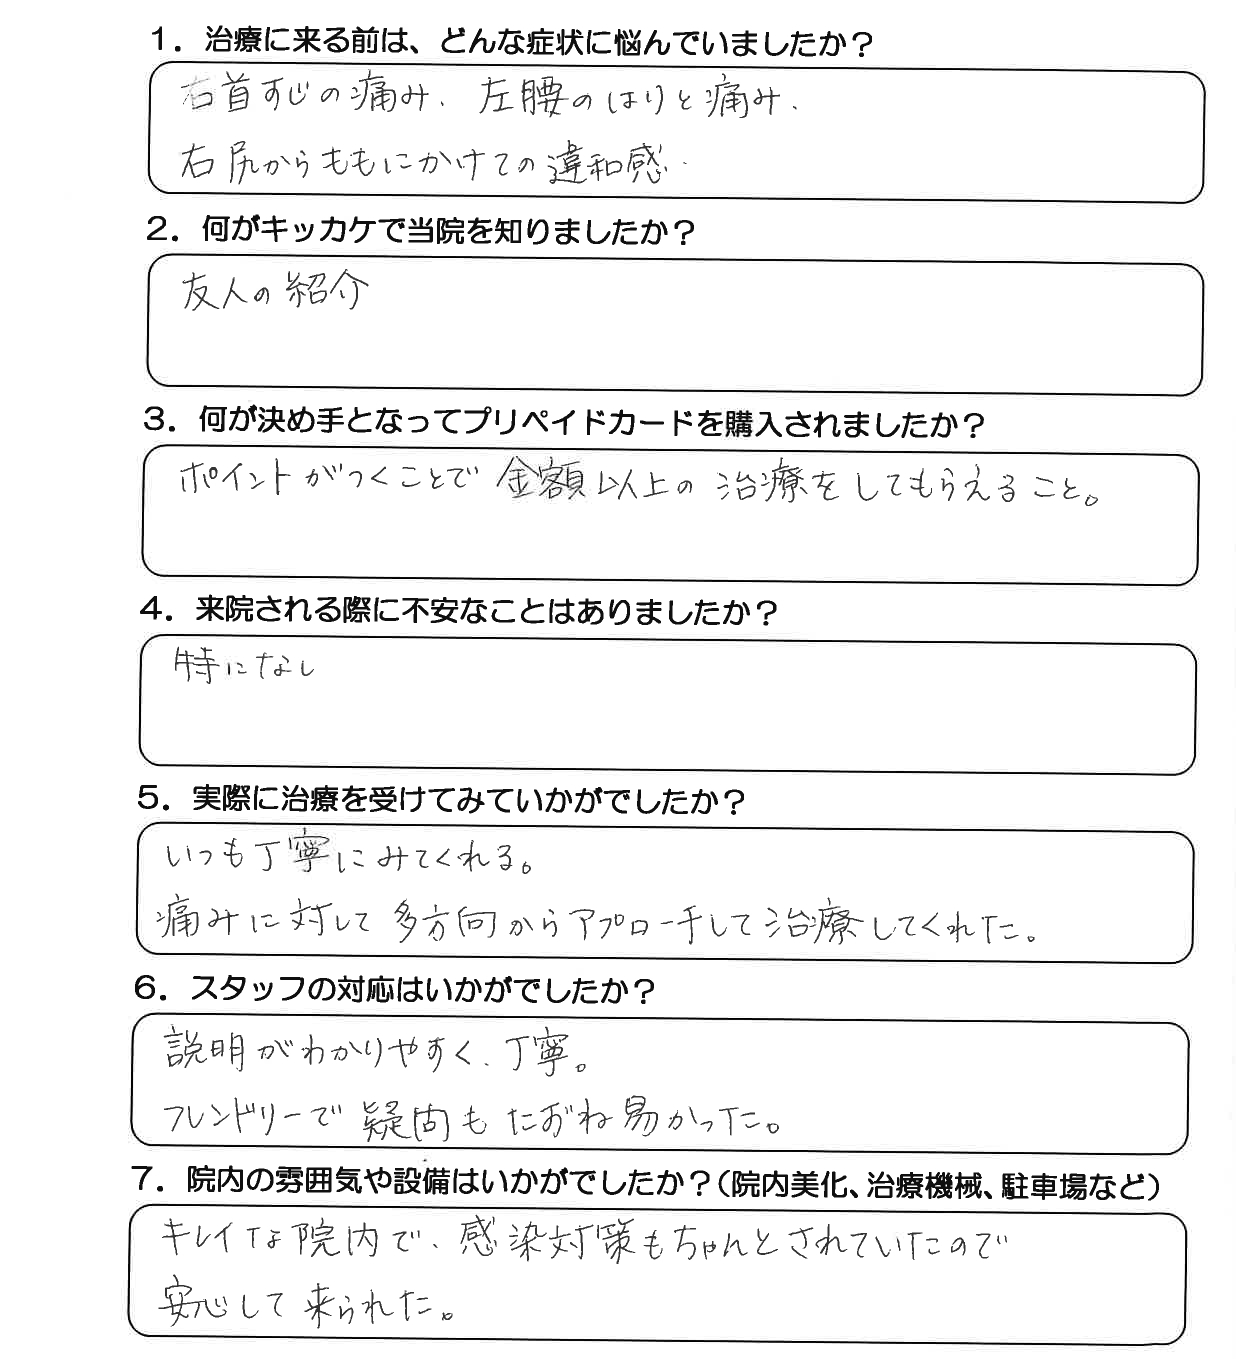 1．治療に来る前は、どんな症状に悩んでいましたか？
右首すじの痛み、左腰のはりと痛み、
右尻からももにかけての違和感．
2．何がキッカケで当院を知りましたか？
友人の紹介
3．何が決め手となってプリペイドカードを購入されましたか？
ポイントがつくことで金額以上の治療をしてもらえること。
4．来院される際に不安なことはありましたか？
特になし
5．実際に治療を受けてみていかがでしたか？
いつも丁寧にみてくれる。
痛みに対して多方向からアプローチして治療してくれた。
6．スタッフの対応はいかがでしたか？
説明がわかりやすく、丁寧。
フレンドリーで疑問もたおね易かった。
7．院内の雰囲気や設備はいかがでしたか？（院内美化、治療機械、駐車場など）
キレイな院内で、感染対策もちゃんとされていたので
安心して来られた。